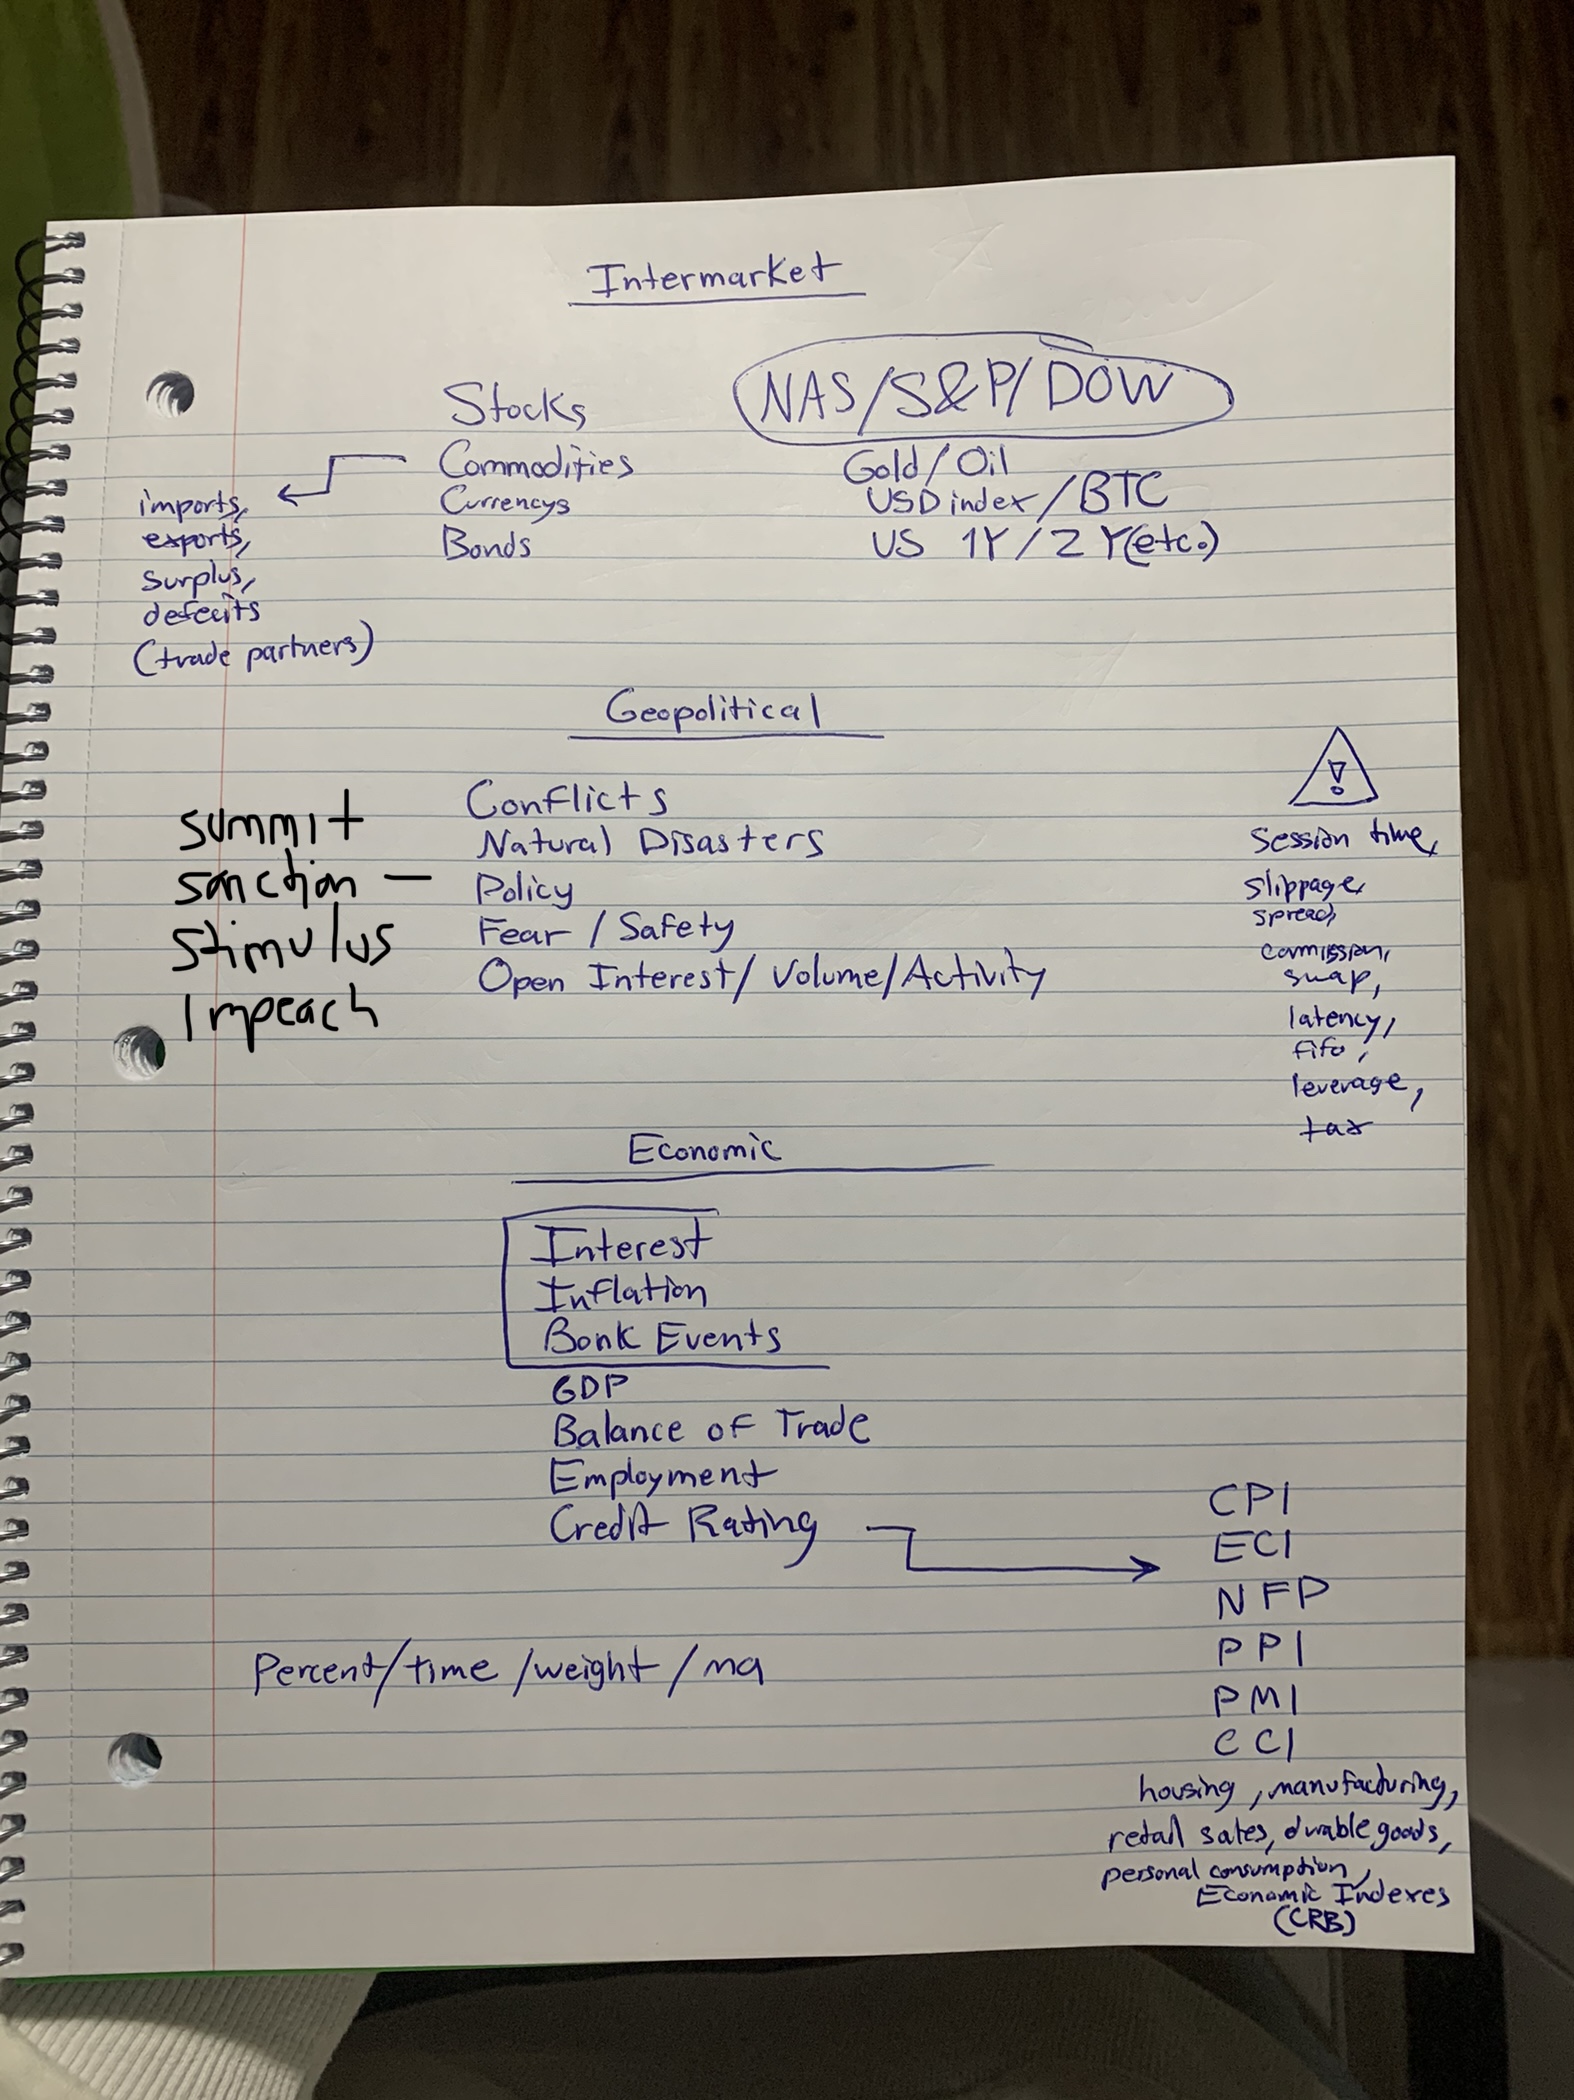 Intermarket
Stocks
NAS/S&P/DOW
Commodities
Gold/Oil
Currencys
USD index/BTC
Bonds
US 1Y/2Y(etc.)
imports,
exports,
surplus,
defecits
(trade partners)
Geopolitical
Conflicts
Natural Disasters
Policy
Fear / Safety
Open Interest/ Volume/Activity
summit
sanction —
stimulus
Impeach
!
Session time,
slippage,
spread,
commission,
swap,
latency,
fifo,
leverage,
tax
Economic
Interest
Inflation
Bank Events
GDP
Balance of Trade
Employment
Credit Rating
CPI
ECI
NFP
PPI
PMI
CCI
housing, manufacturing,
retail sales, durable goods,
personal consumption,
Economic Indexes
(CRB)
Percent/time/weight/ma